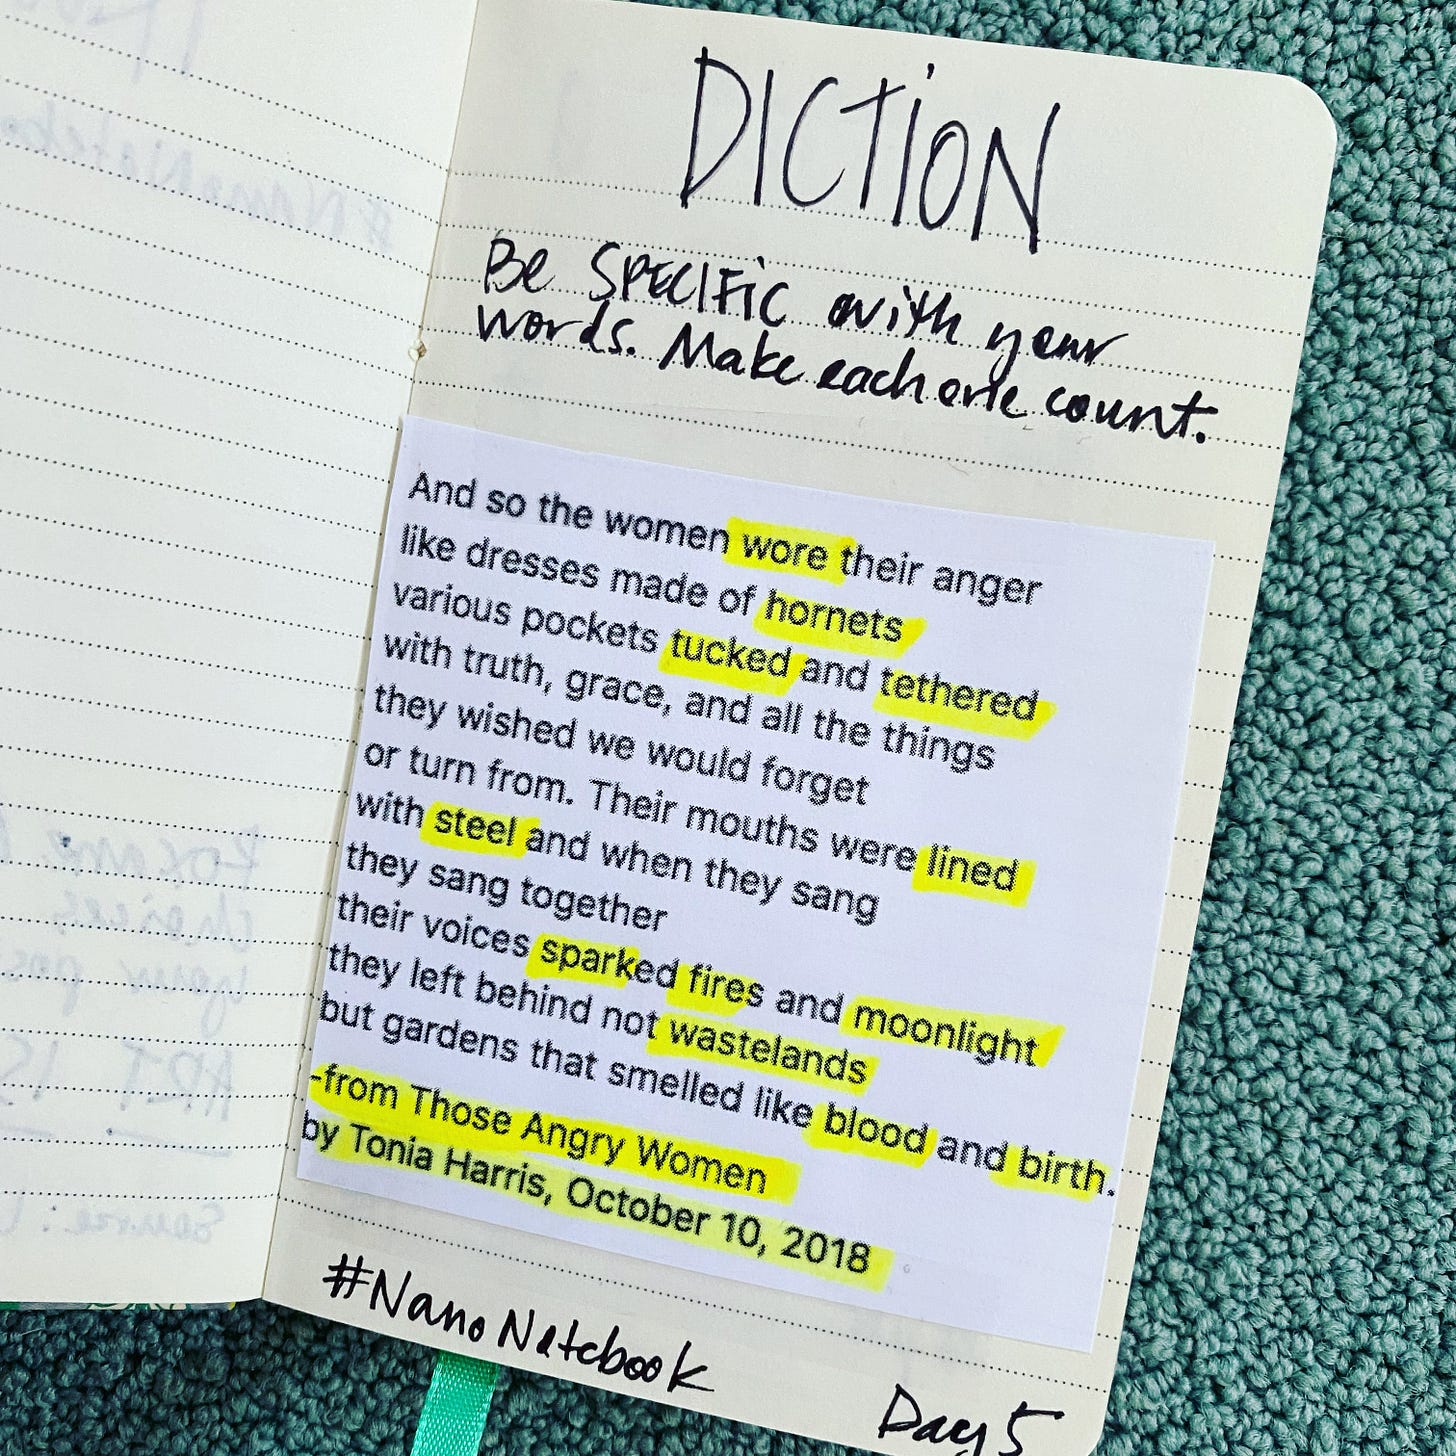 DICTION
Be SPECIFIC with your
words. Make each one count.
And so the women wore their anger
like dresses made of hornets
various pockets tucked and tethered
with truth, grace, and all the things
they wished we would forget
or turn from. Their mouths were lined
with steel and when they sang
they sang together
their voices sparked fires and moonlight
they left behind not wastelands
but gardens that smelled like blood and birth.
-from Those Angry Women
by Tonia Harris, October 10, 2018
#NanoNotebook
Day 5